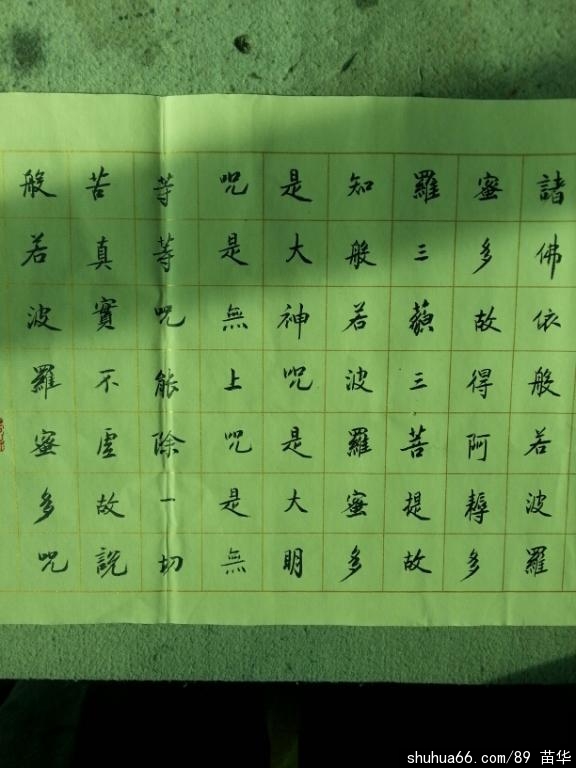 諸佛依般若波羅
蜜多故得阿耨多
羅三藐三菩提故
知般若波羅蜜多
是大神咒是大明
咒是無上咒是無
等等咒能除一切
苦真實不虛故說
般若波羅蜜多咒
shuhua66.com/89 苗华